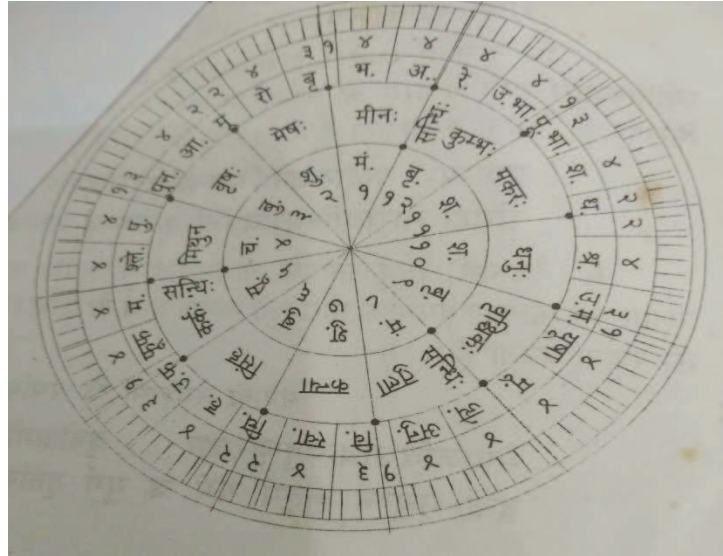 ३ १ ४ ४ ४ ४ १ ३ ४ २ २ ४ ३ १ ४ ४ ४ ४ १ ३ ४ २ २ ४ ३ १ ४ ४ ४ ४ १ ३ ४ २ २ ४
बृ भ. अ. रे. उ.भा. पू.भा. श. ध. श्र. उ.षा. मू. ज्ये. अनु. वि. स्वा. चि. ह. उ.फ. म. श्ले. पु. पुन. आ. मृ रो
मेषः मीनः सन्धिः कुम्भः मकरः धनुः वृश्चिकः तुला कन्या सिंह कर्कः सन्धिः मिथुन वृषः
मं. बृ. श. श. बृ. मं. शु. बु. चं. बु. शु.
१ १२ ११ १० ९ ८ ७ ६ ५ ४ ३ २